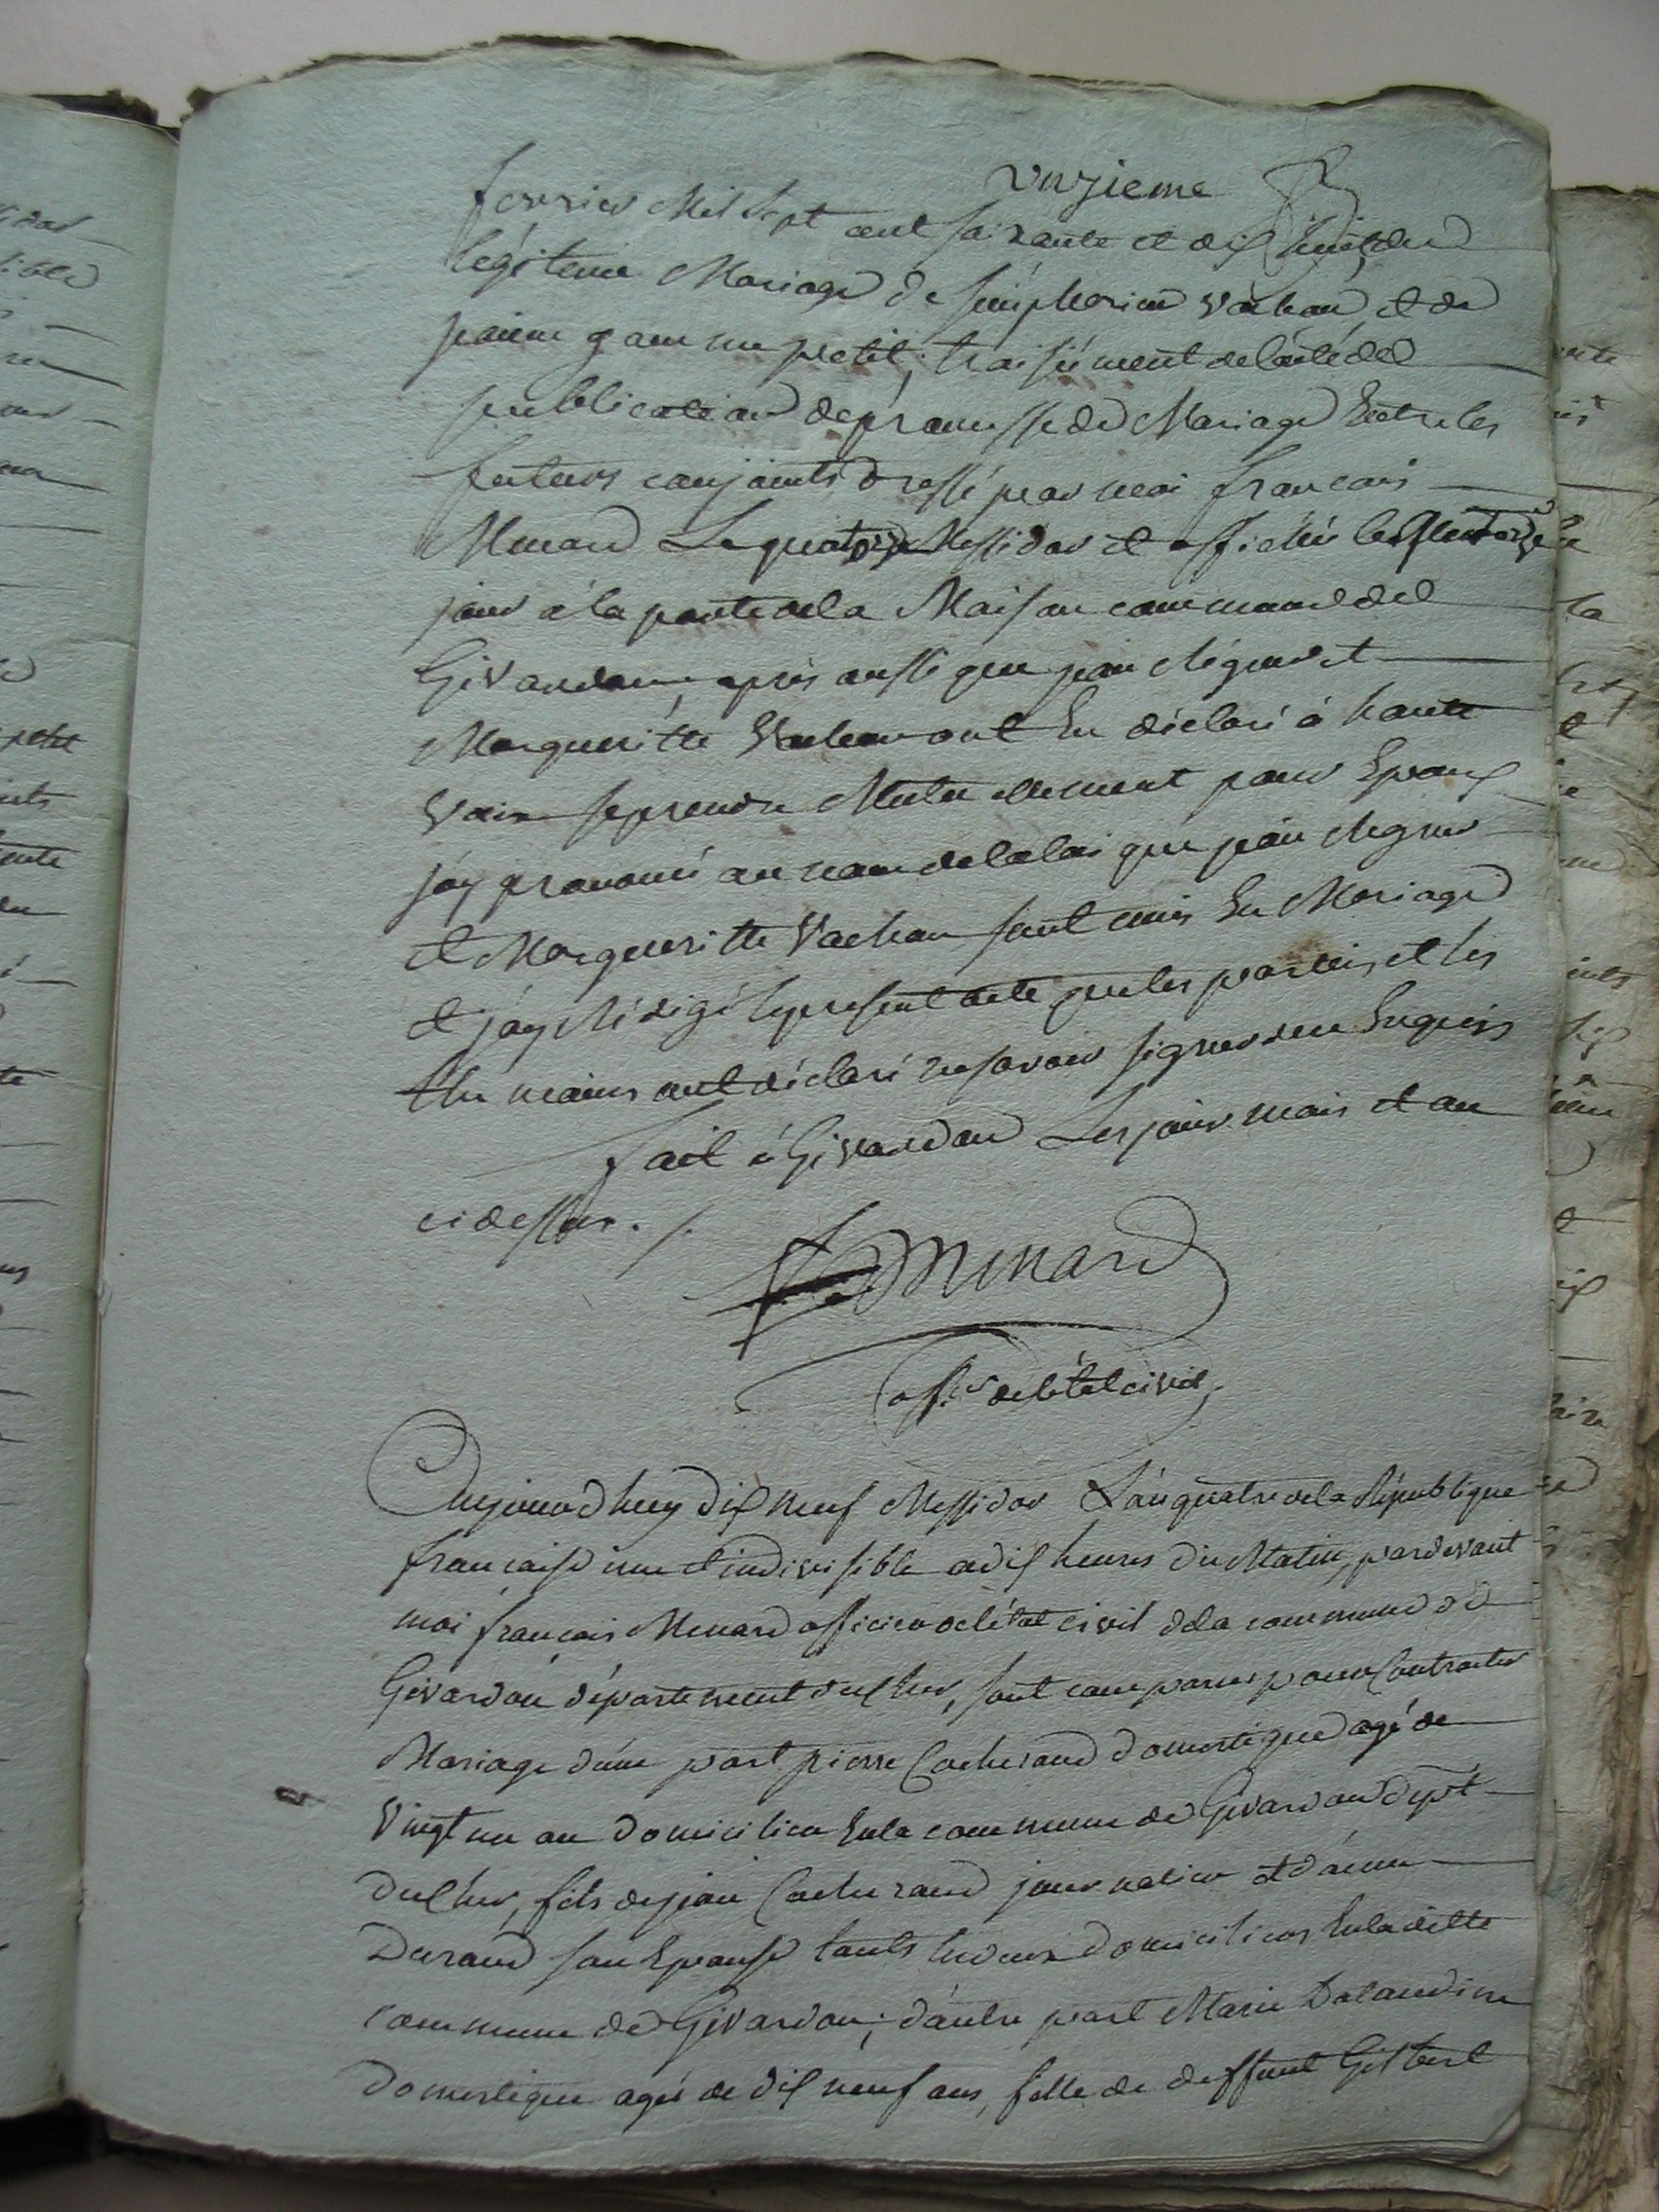 unzieme
fevrier Mil Sept cent soixante et dix huit, du
légitime Mariage de simphorien Vachau et de
jeanne petit; troisiément de l'acte de
publication de promesse de Mariage Entre les
futurs conjoints dressé par moi francois
Menard Le quatorze Messidor et affiché le
jour a la porte de la Maison commune de
Givardon, après aussi que jean Régner et
Margueritte Vachau ont Eu déclaré à haute
Voix se prendre Mutuellement pour Epoux
j'ay prononcé au nom de la loi que jean Regner
et Margueritte Vachau sont unis En Mariage
et j'ay Rédigé le present acte que les parties et les
thé moins ont déclaré ne savoir signer de ce Enquis
fait à Givardon Les jour mois et an
ci dessus ./.
Menard
off.er de l'état civil
Aujourdhuy dix neuf Messidor L'an quatre de la République
francaise une et indivisible a dix heures du Matin, pardevant
moi francois Menard officier de l'état civil de la commune de
Givardon département du Cher, sont comparus pour Contracter
Mariage d'une part pierre Cacherand domestique agé de
Vingt un an domicilier En la commune de Givardon dept
du Cher, fils de jean Cacherand journalier et d'anne
Durand son Epouse touts les deux domiciliers En la ditte
commune de Givardon; d'autre part Marie Dalaudine
domestique agée de dix neuf ans, fille de deffunt Gilbert